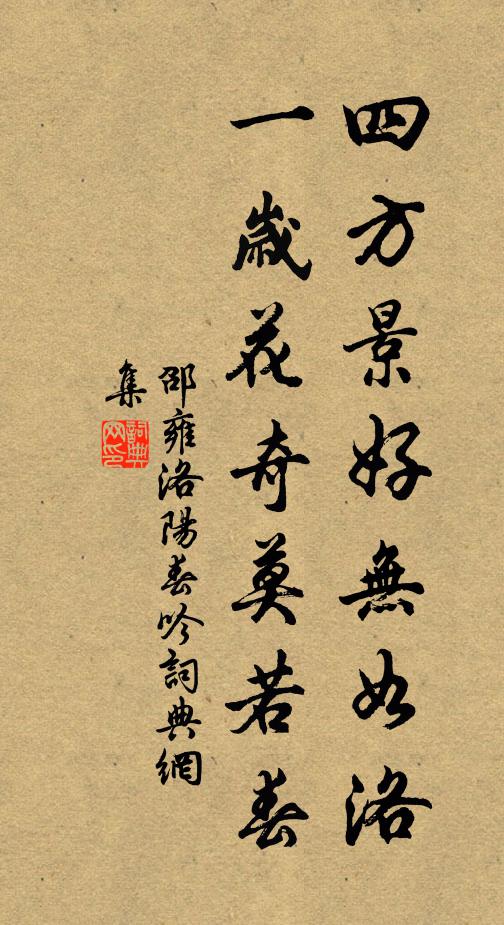 四方景好無如洛
一歲花奇莫若春
邵雍洛陽春吟詞典網
集
詞典
网印